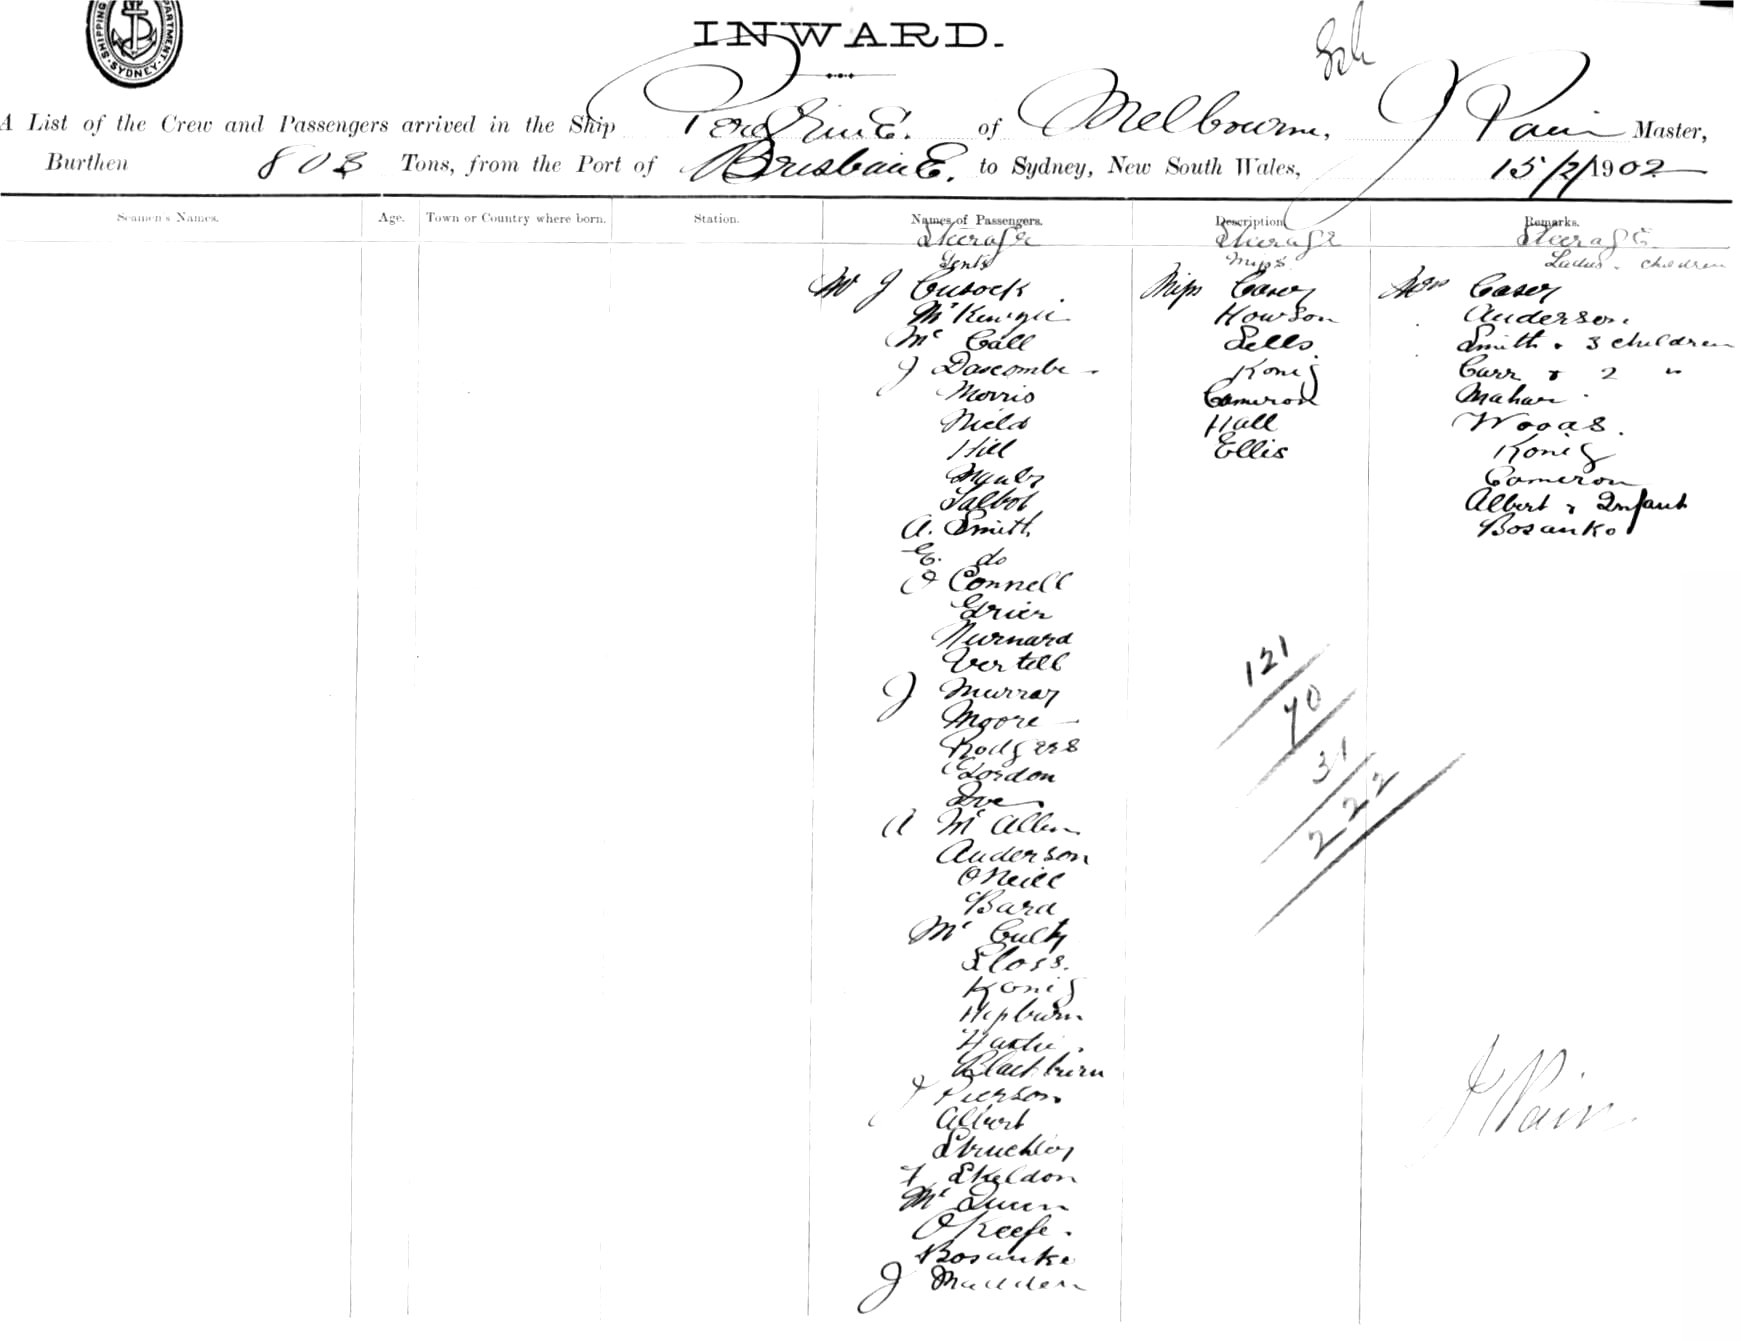 SHIPPING DEPARTMENT SYDNEY
INWARD.
A List of the Crew and Passengers arrived in the Ship PeregrinE. of Melbourne, J Pain Master,
Burthen 803 Tons, from the Port of BrisbanE. to Sydney, New South Wales, 15/2/1902
Seamen's Names. Age. Town or Country where born. Station. Names of Passengers. Description Remarks.
Steerage Steerage Steerage
Gents Miss Ladies & children
Mr J Cusack Miss Casey Mrs Casey
McKenzie Howson Anderson
Mc Call Sells Smith & 3 children
J Dascombe Konig Carr & 2 "
Morris Cameron Mahar
Nield Hall Woods.
Hill Ellis Konig
Manly Cameron
Talbot Albert & Infant
A. Smith Bosanko
E. do
O Connell
Grier
Nurnard
Vertell
J Murray
Moore
Rodgers
Gordon
A Mc Allen
Anderson
ONeill
Bard
Mc Culty
Sloss.
Konig
Hepburn
Hartie.
Blackburn
J Pierson
Albert
Struckley
F Skeldon
Mc Queen
OKeefe.
Bosanko
J Madden
121
70
31
222
J Pain